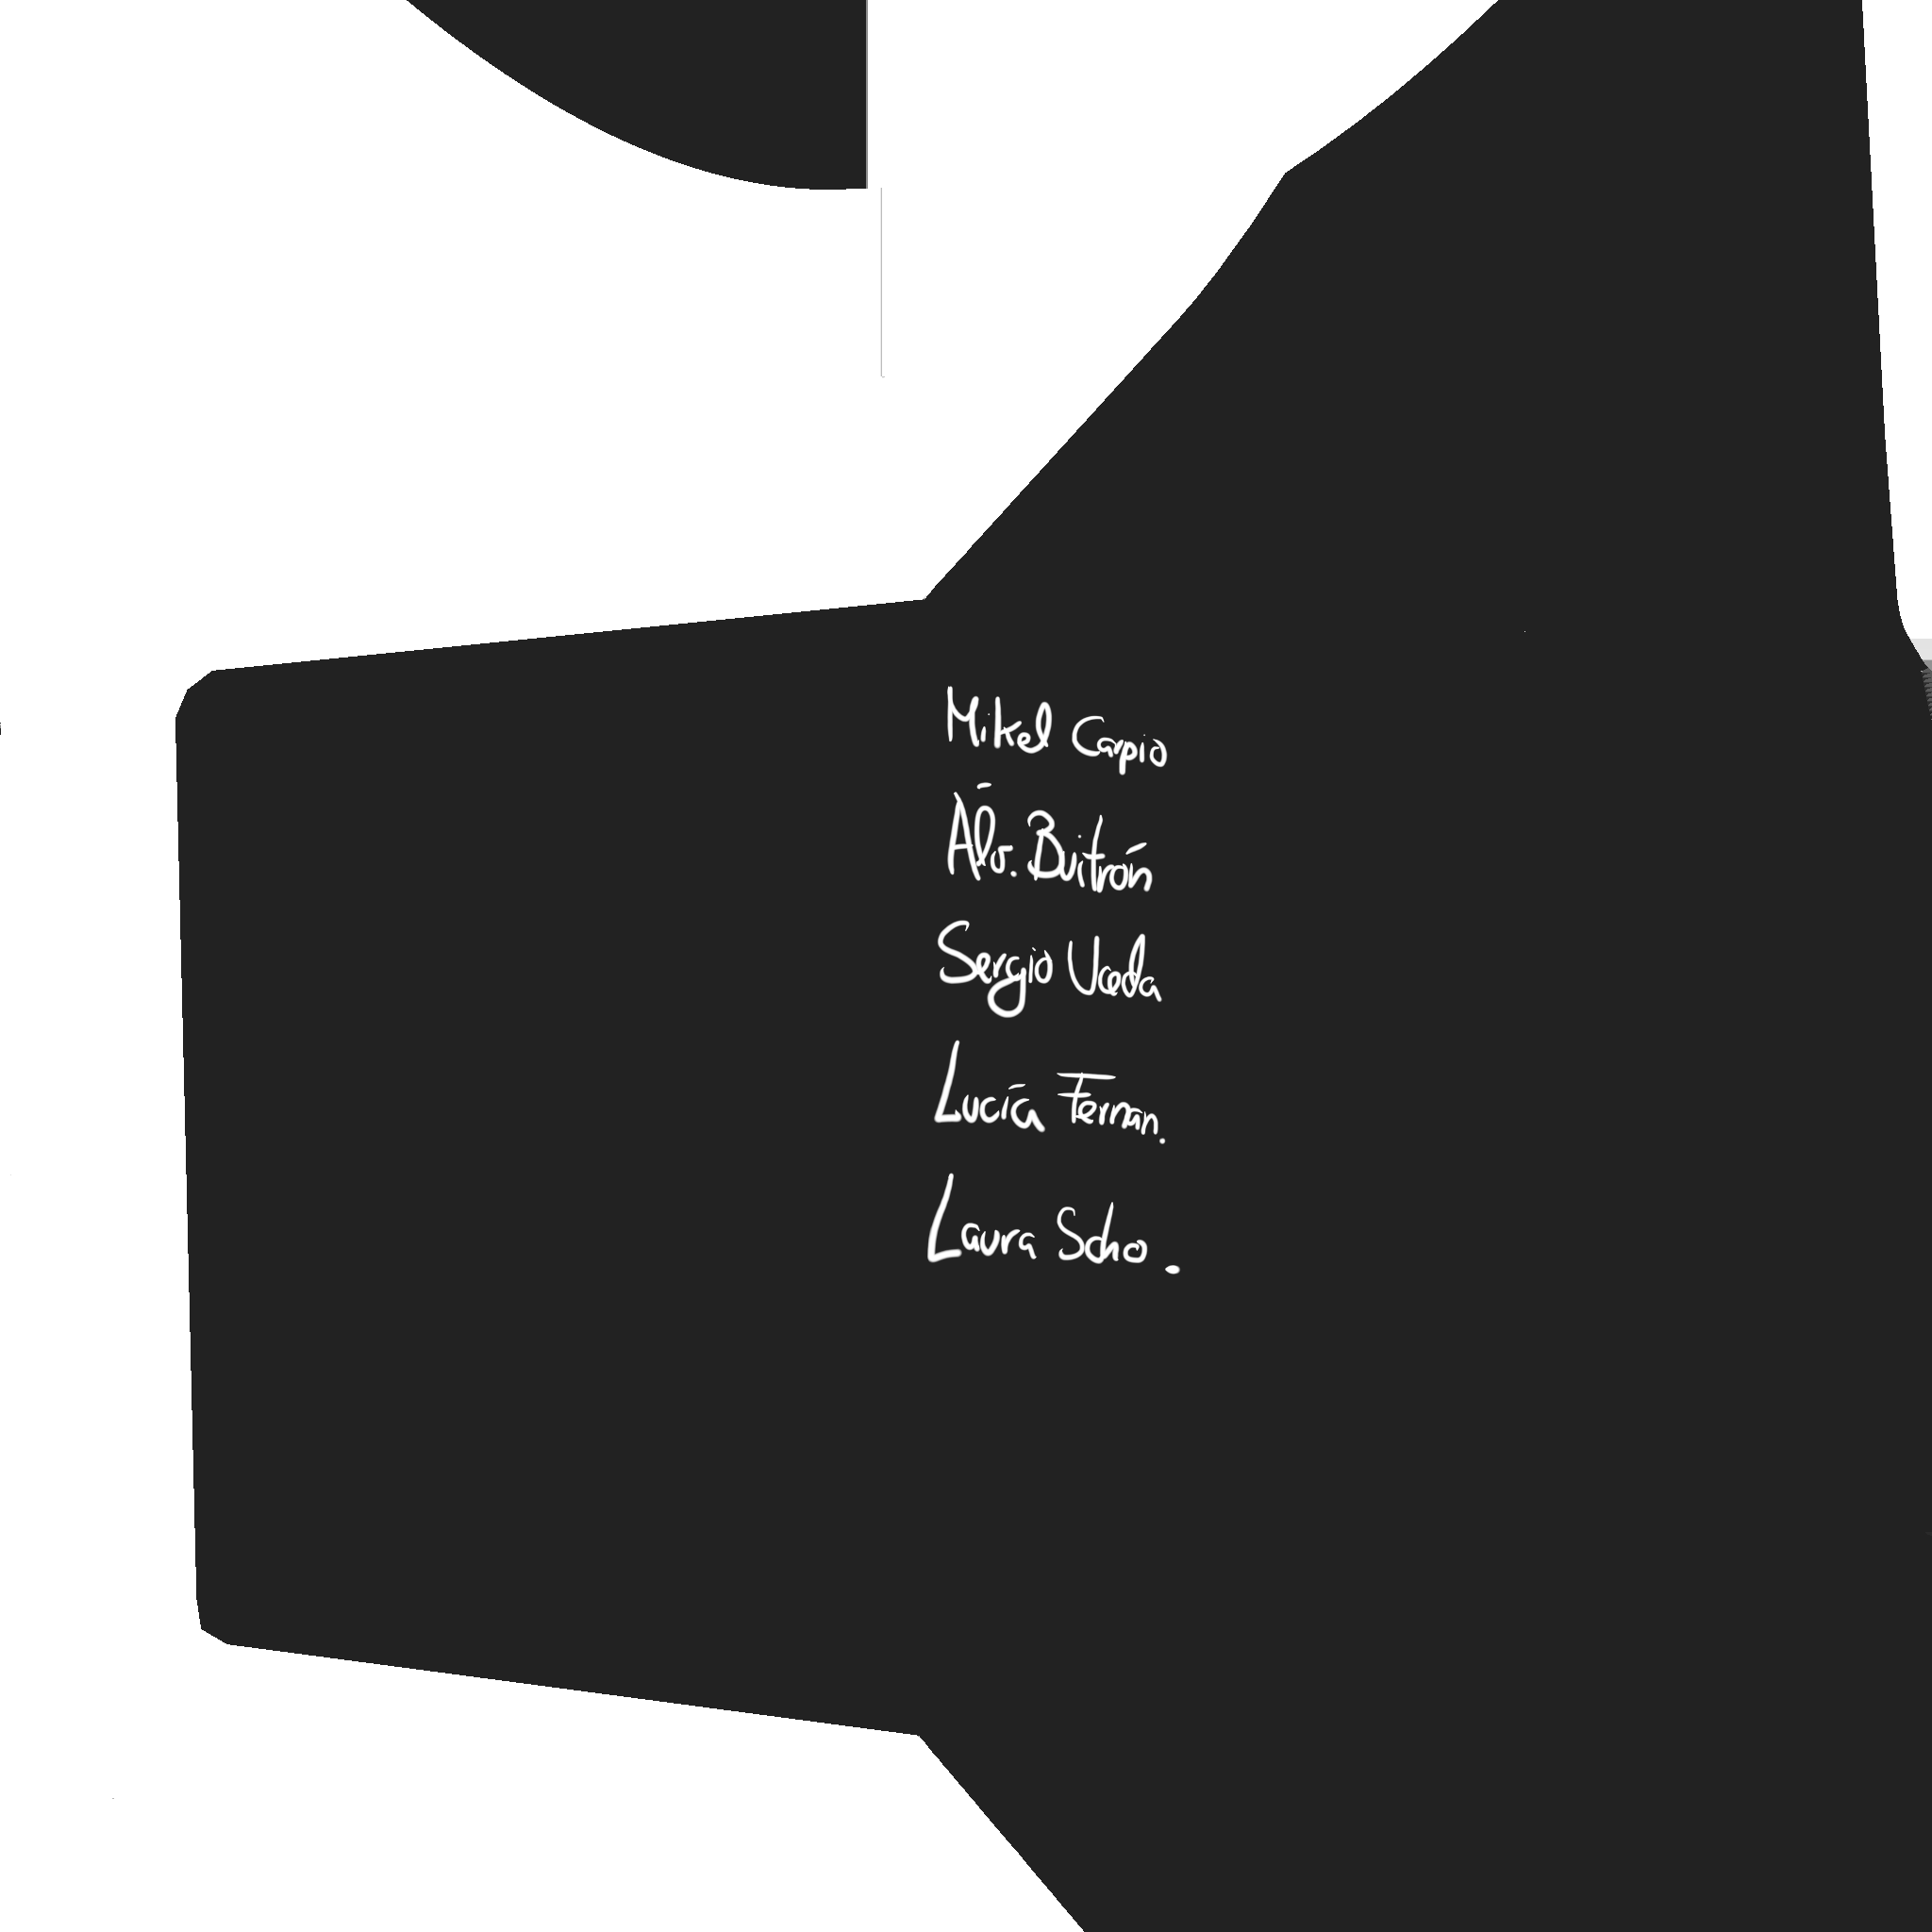 Mikel Carpio
Álv. Buitrón
Sergio Uceda
Lucía Fernan.
Laura Scho.